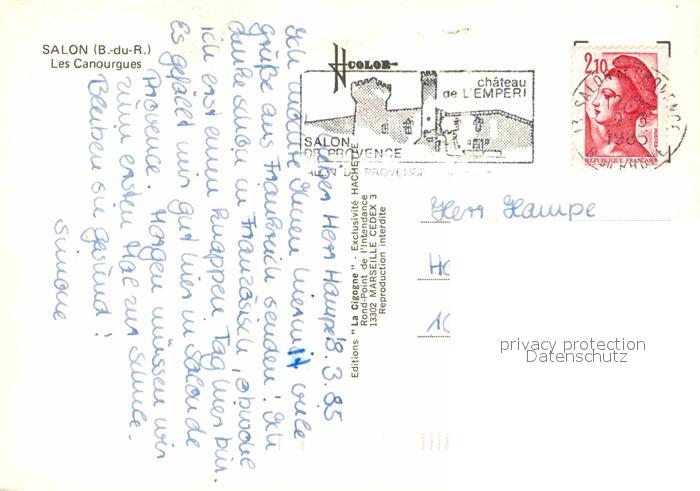 SALON (B.-du-R.)
Les Canourgues
COLOR
château
de L'EMPÉRI
SALON
DE PROVENCE
2,10
RÉPUBLIQUE FRANÇAISE
POSTES
13 SALON DE PROVENCE
1985
Editions "La Cigogne" - Exclusivité HACHETTE
Rond-Point de l'Intendance
13302 MARSEILLE CEDEX 3
Reproduction interdite
Herr Hampe
privacy protection
Datenschutz
Herr Hampe 8.3.85
Ich möchte Ihnen hiermit viele
Grüße aus Frankreich senden! Ich
denke schon in Französisch, obwohl
ich erst einen knappen Tag hier bin.
Es gefällt mir gut hier in Salon de
Provence. Morgen müssen wir
zum ersten Mal zur Schule.
Bleiben Sie gesund!
Simone